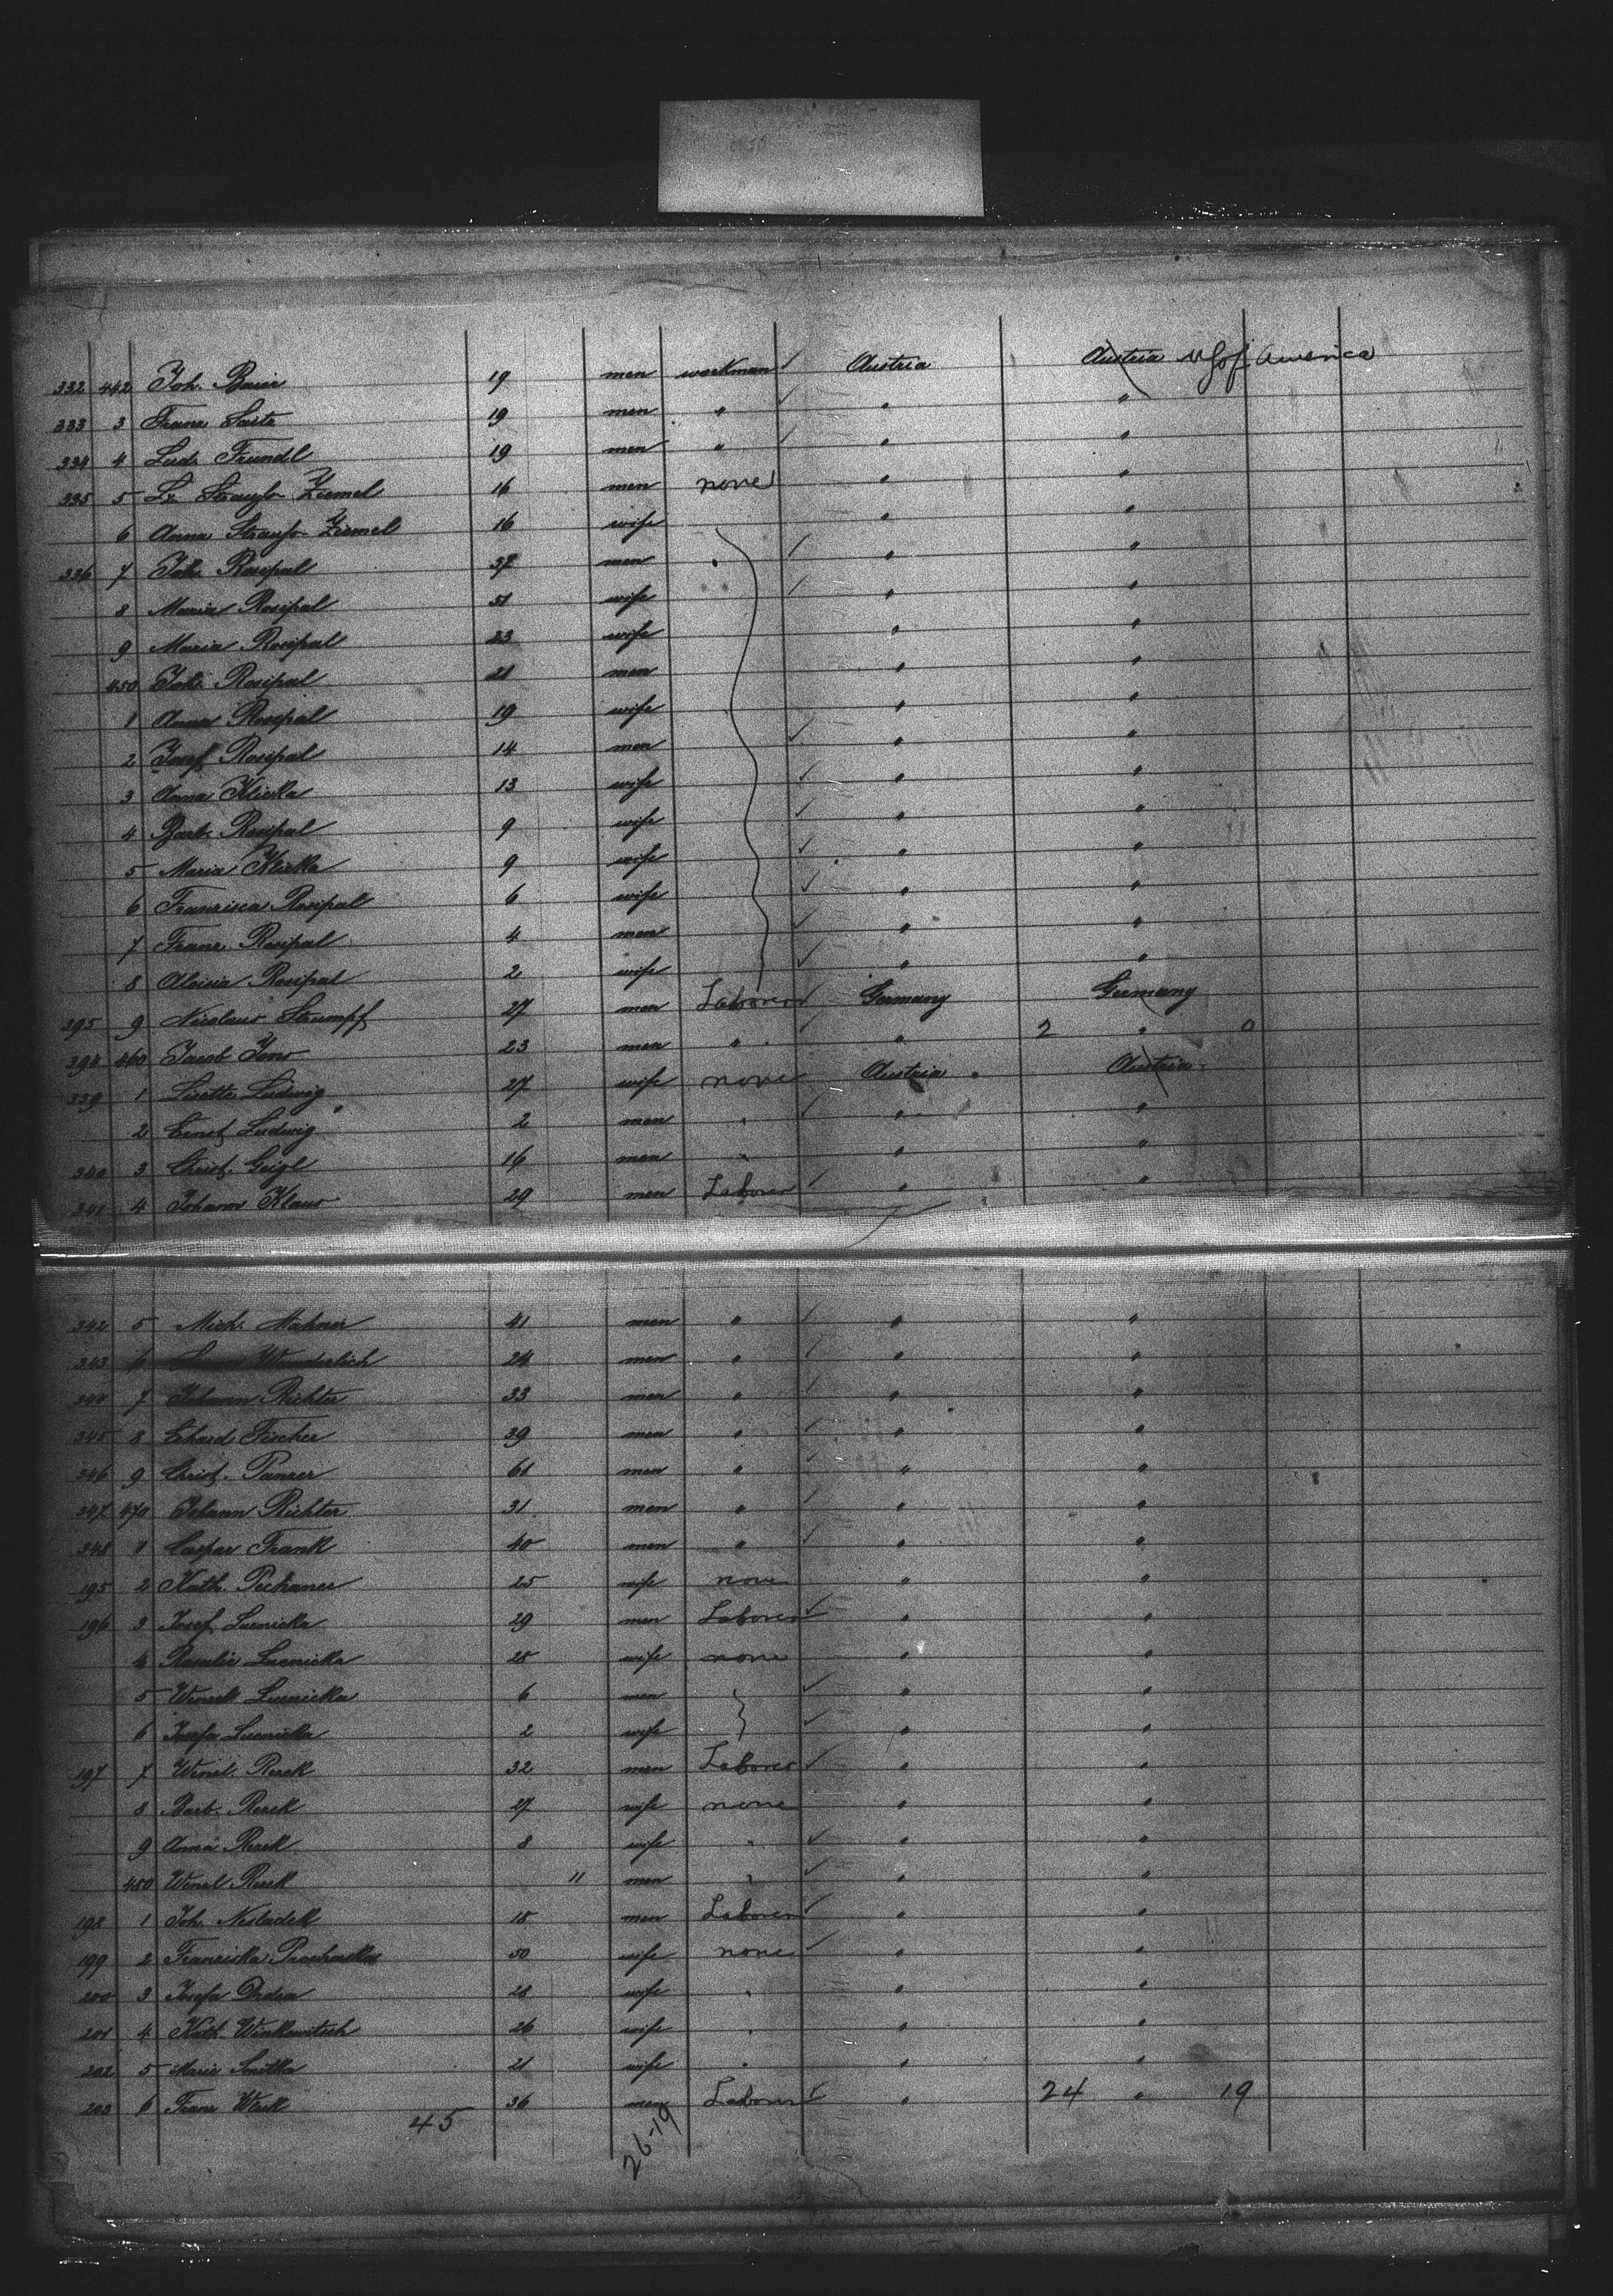 332 442 Joh. Baier 19 men workman Austria Austria U S of America
333 3 Franz 19 men " " "
334 4 Lud. Trundl 19 men " " "
335 5 16 men none " "
6 Anna 16 wife " "
336 7 Joh. Rosipal 37 men " " "
8 Maria Rosipal 51 wife " "
9 Maria Rosipal 23 wife " "
450 Joh. Rosipal 21 men " "
1 Anna Rosipal 19 wife " "
2 Josef Rosipal 14 men " "
3 Anna Klicka 13 wife " "
4 Barb. Rosipal 9 wife " "
5 Maria Klicka 9 wife " "
6 Francisca Rosipal 6 wife " "
7 Franz Rosipal 4 men " "
8 Aloisia Rosipal 2 wife " "
395 9 Nicolaus Stumpf 27 men Laborer Germany Germany
394 460 Jacob 23 men " " 2 " 0
339 1 Lisette Ludwig 27 wife none Austria Austria
2 Ernst Ludwig 2 men " " "
340 3 Christ. Geigl 16 men " " "
341 4 Johann Klaus 29 men Laborer " "
342 5 Mich. 41 men " " "
343 6 Wunderlich 24 men " " "
344 7 Johann Richter 33 men " " "
345 8 Erhard Fischer 39 men " " "
346 9 Christ. Panzer 61 men " " "
347 470 Johann Richter 31 men " " "
348 1 Caspar Frank 40 men " " "
195 2 Kath. 25 wife none " "
196 3 Josef Lucnicka 29 men Laborer " "
4 Rosalie Lucnicka 28 wife none " "
5 Lucnicka 6 men " "
6 Josefa Lucnicka 2 wife " "
197 7 Wenzl. Rezek 32 men Laborer " "
8 Barb. Rezek 27 wife none " "
9 Anna Rezek 8 wife " " "
480 Wenzl Rezek 11 men " " "
198 1 Joh. 18 men Laborer " "
199 2 Franziska Prochaska 50 wife none " "
200 3 Josefa 28 wife " " "
201 4 Kath. 26 wife " " "
202 5 Marie 21 wife " " "
203 6 Franz 36 men Laborer " 24 " 19
45 26-19